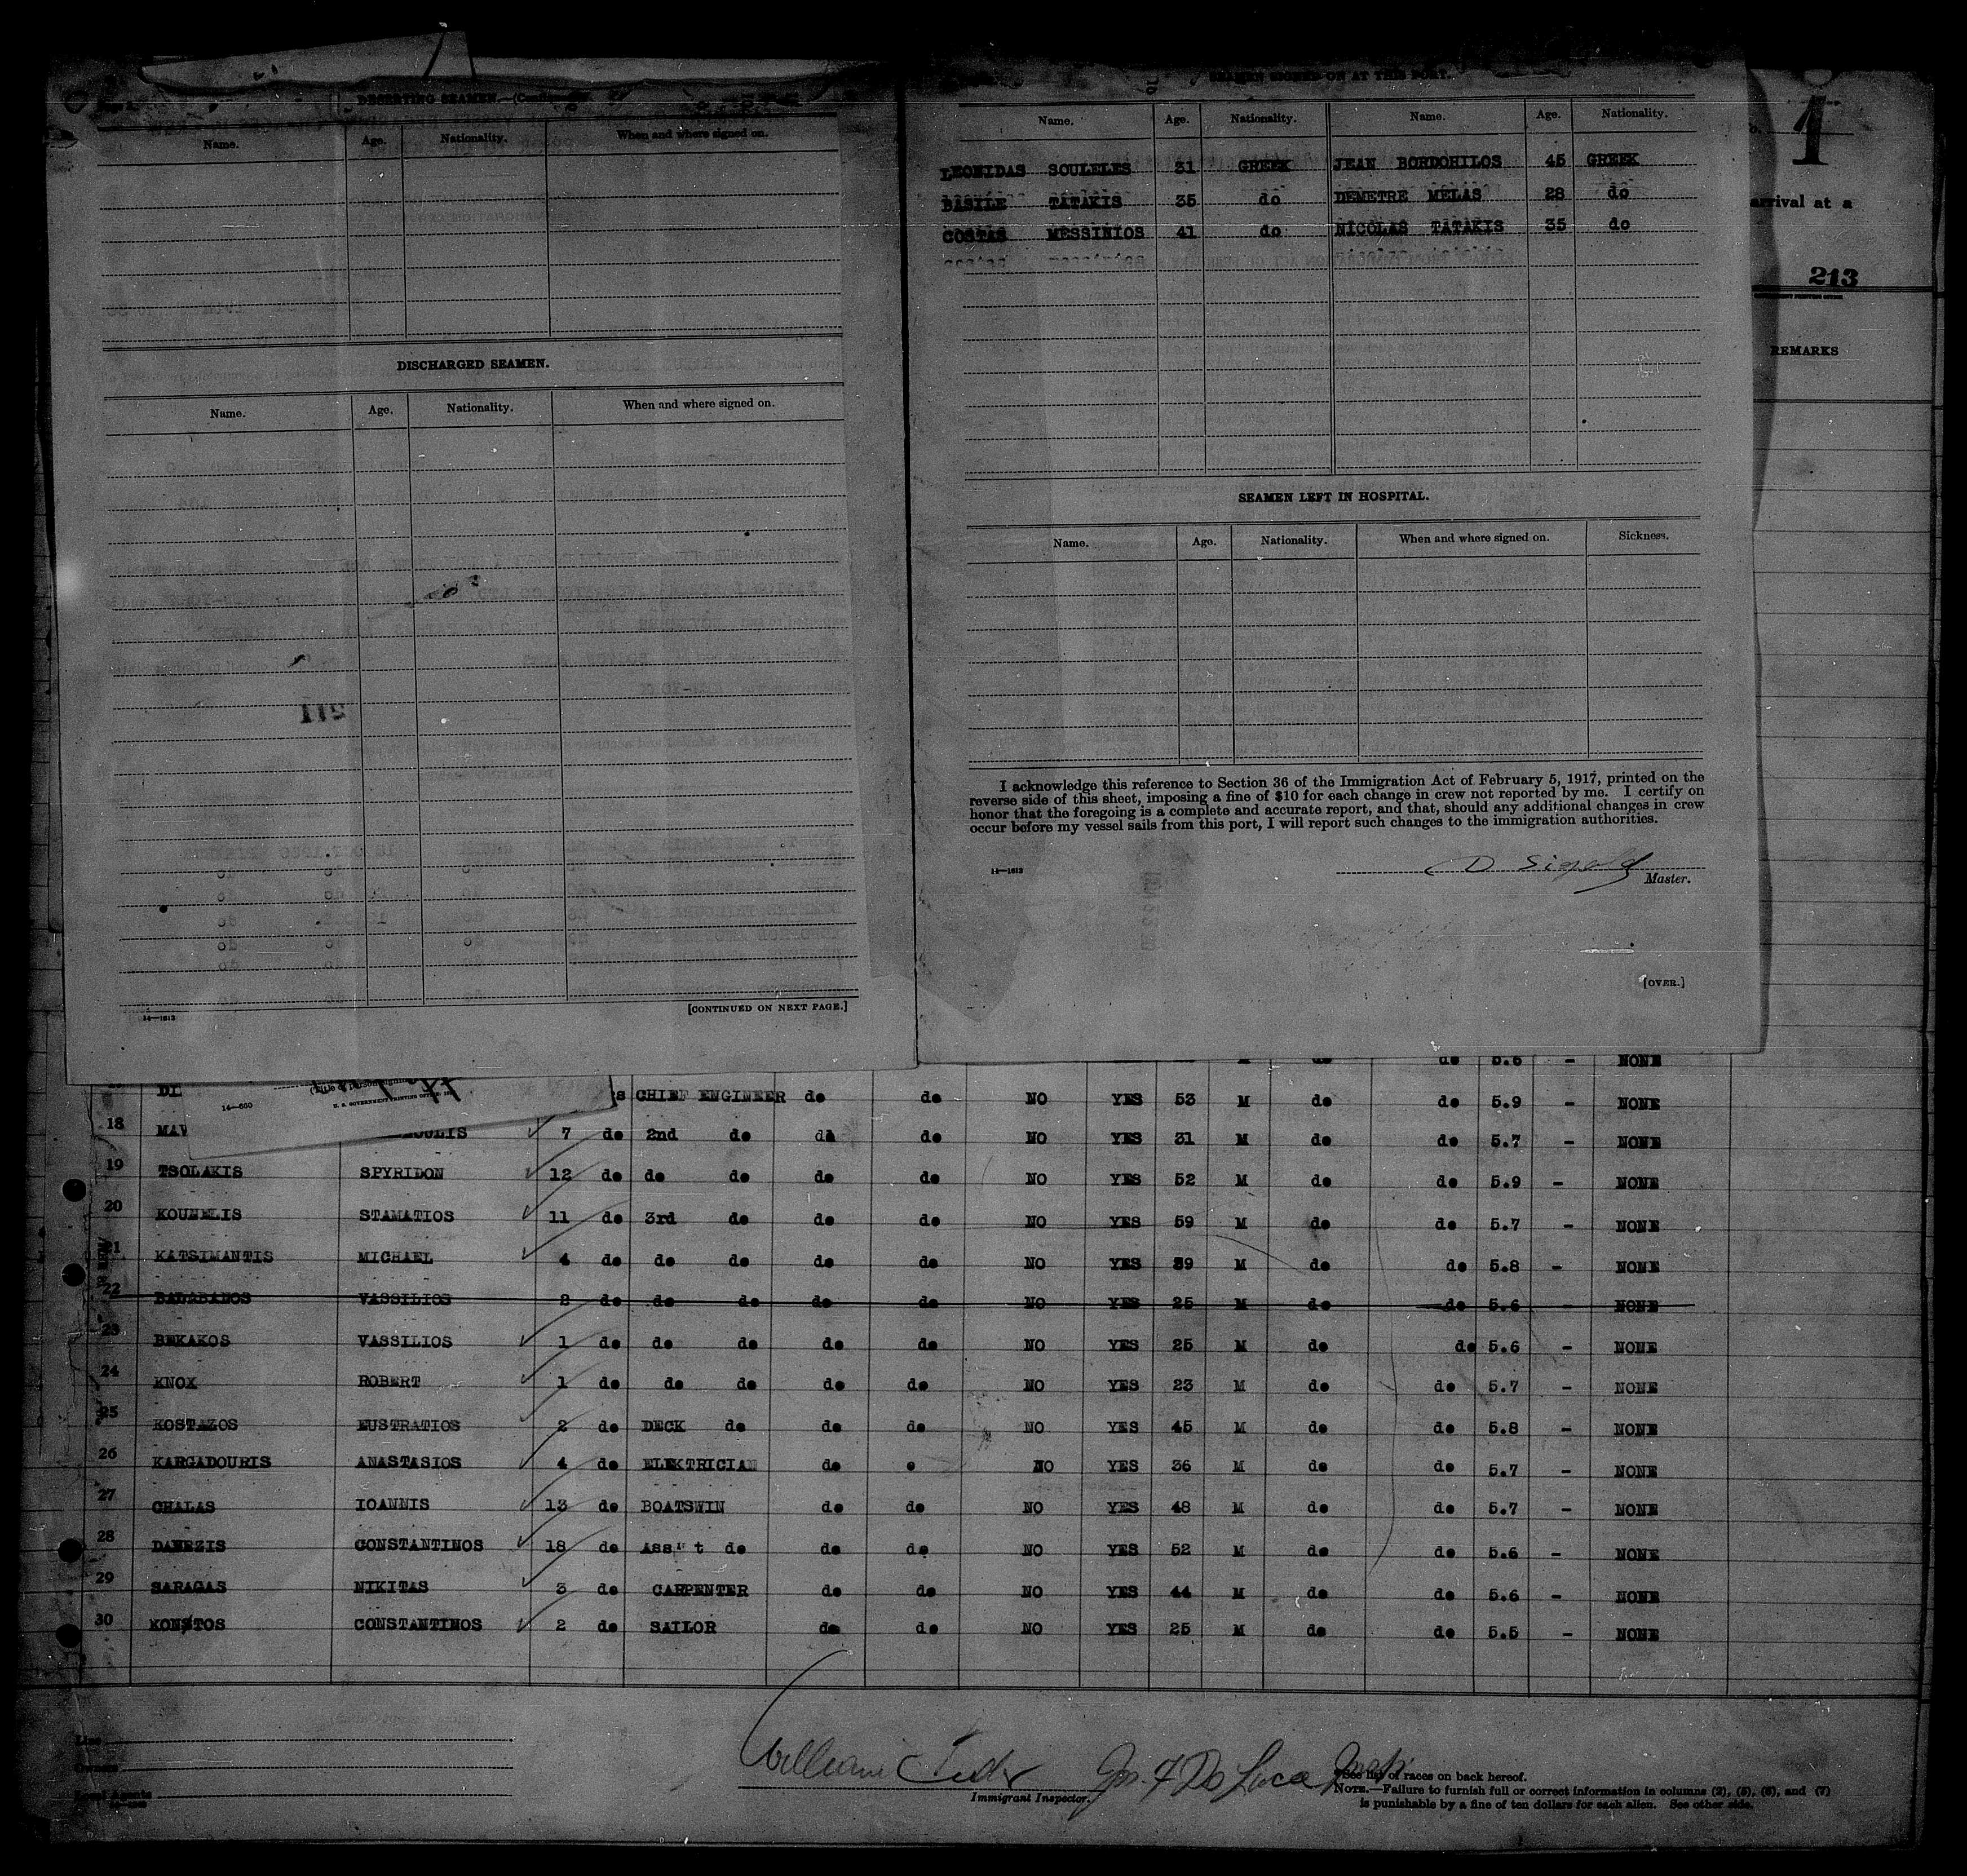 DESERTING SEAMEN
Name. Age. Nationality. When and where signed on.
DISCHARGED SEAMEN.
Name. Age. Nationality. When and where signed on.
[CONTINUED ON NEXT PAGE.]
14—1613
SEAMEN SIGNED ON AT THIS PORT.
Name. Age. Nationality. Name. Age. Nationality.
LEONIDAS SOULELES 31 GREEK JEAN BORDOHILOS 45 GREEK
BASILE TATAKIS 35 do DEMETRE MELAS 28 do
COSTAS MESSINIOS 41 do NICOLAS TATAKIS 35 do
SEAMEN LEFT IN HOSPITAL.
Name. Age. Nationality. When and where signed on. Sickness.
I acknowledge this reference to Section 36 of the Immigration Act of February 5, 1917, printed on the
reverse side of this sheet, imposing a fine of $10 for each change in crew not reported by me. I certify on
honor that the foregoing is a complete and accurate report, and that, should any additional changes in crew
occur before my vessel sails from this port, I will report such changes to the immigration authorities.
14—1613
Master.
[OVER.]
1
arrival at a
213
REMARKS
do do 5.6 - NONE
14—560
DI s CHIEF ENGINEER do do NO YES 53 M do do 5.9 - NONE
18 MAV 7 do 2nd do do do NO YES 31 M do do 5.7 - NONE
19 TSOLAKIS SPYRIDON 12 do do do do do NO YES 52 M do do 5.9 - NONE
20 KOUNELIS STAMATIOS 11 do 3rd do do do NO YES 59 M do do 5.7 - NONE
21 KATSIMANTIS MICHAEL 4 do do do do do NO YES 39 M do do 5.8 - NONE
22 BALABANOS VASSILIOS 8 do do do do do NO YES 25 M do do 5.6 - NONE
23 BEKAKOS VASSILIOS 1 do do do do do NO YES 25 M do do 5.6 - NONE
24 KNOX ROBERT 1 do do do do do NO YES 23 M do do 5.7 - NONE
25 KOSTAZOS EUSTRATIOS 2 do DECK do do do NO YES 45 M do do 5.8 - NONE
26 KARGADOURIS ANASTASIOS 4 do ELEKTRICIAN do o NO YES 36 M do do 5.7 - NONE
27 CHALAS IOANNIS 13 do BOATSWIN do do NO YES 48 M do do 5.7 - NONE
28 DANEZIS CONSTANTINOS 18 do Ass't do do do NO YES 52 M do do 5.6 - NONE
29 SARAGAS NIKITAS 3 do CARPENTER do do NO YES 44 M do do 5.6 - NONE
30 KONSTOS CONSTANTINOS 2 do SAILOR do do NO YES 25 M do do 5.5 - NONE
Line
Owners
Local Agents
Immigrant Inspector.
*See list of races on back hereof.
NOTE.—Failure to furnish full or correct information in columns (2), (5), (6), and (7)
is punishable by a fine of ten dollars for each alien. See other side.